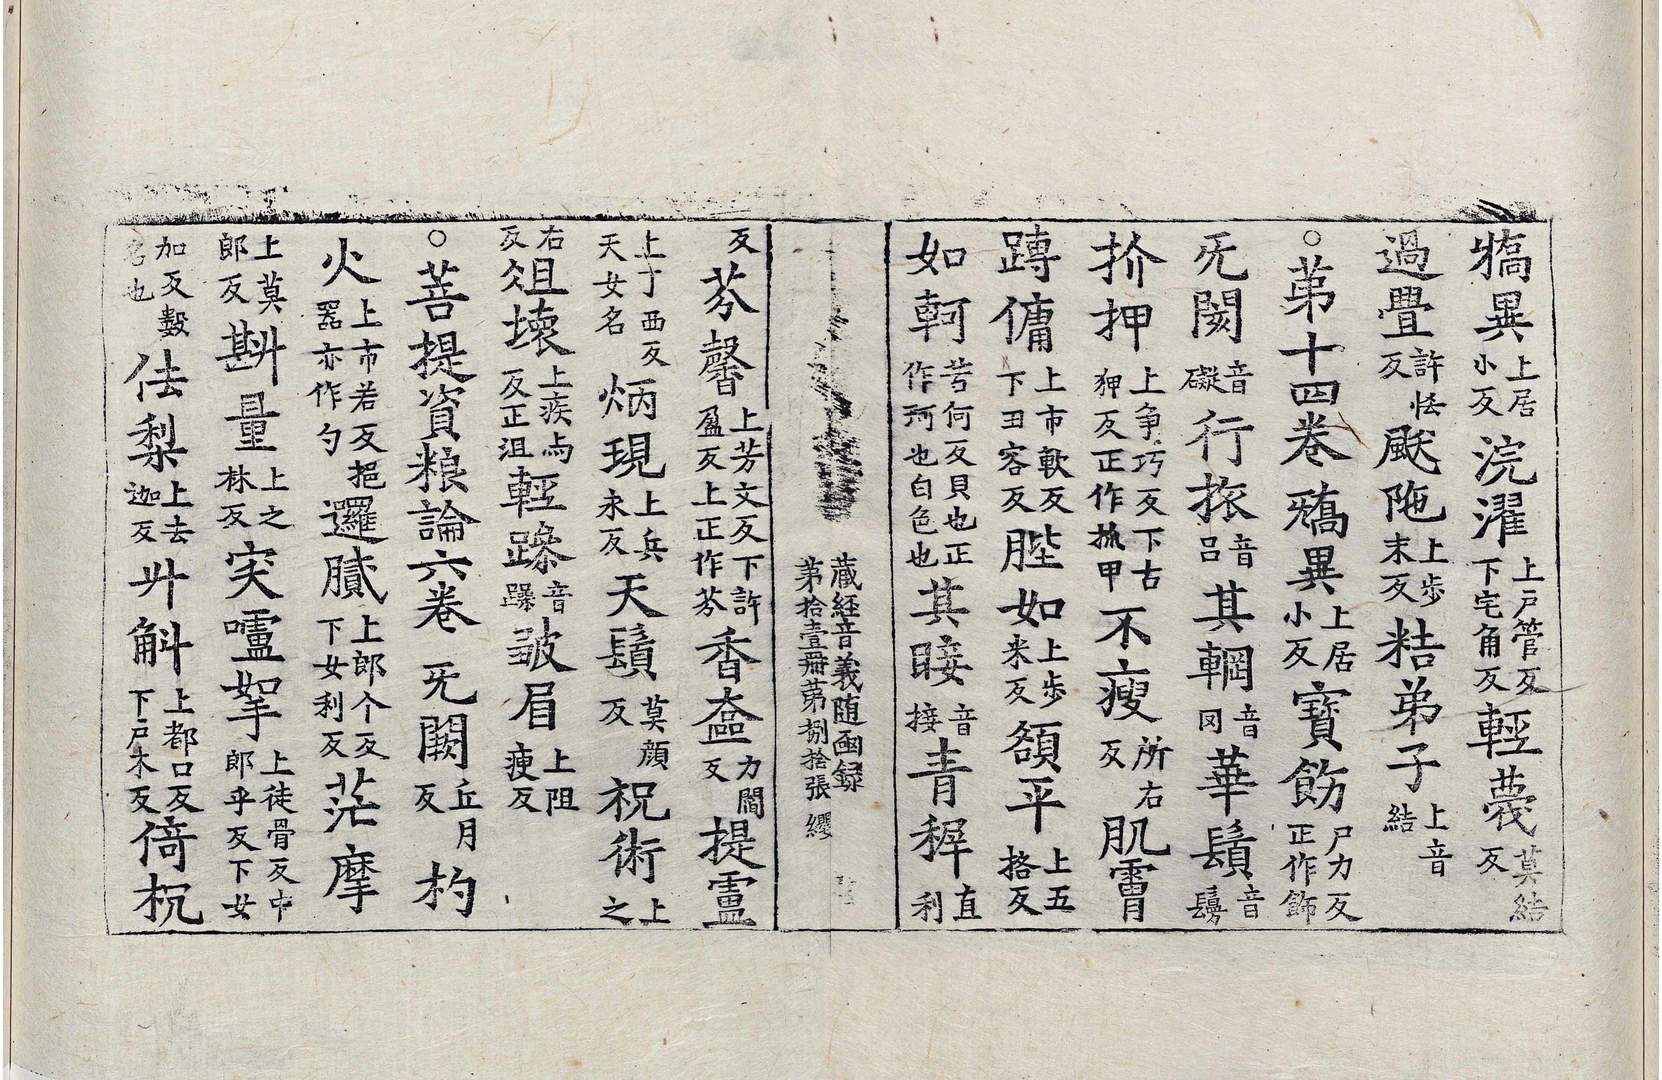 犞異上居小反浣濯上戸管反下宅角反輕薎莫結反
過疊許怯反颰陁上步末反秸弟子上音結
○苐十四卷殦異上居小反寶飭尸力反正作飾
旡閡音礙行旅音吕其輞音冈華鬚音鬘
扴押上爭巧反下古狎反正作抓甲不瘦所右反肌霄
蹲傭上市軟反下丑容反䏶如上步米反頟平上五挌反
如軻苦何反貝也正作珂也白色也其䀹音接青稺直利
藏経音義随函録
苐拾壹冊苐捌拾張 纓
反芬馨上芳文反下許盈反上正作芬香奩力閻反提𤫊
上丁西反天女名炳現上兵永反天鬚莫顔反祝術上之
右反俎壞上疾与反正沮輕躁音躁皱眉上阻瘦反
○菩提資粮論六卷 旡闕丘月反杓
火上市若反挹器亦作勺邏膩上郎个反下女利反茫摩
上莫郎反斟量上之林反突嚧拏上徒骨反中郎乎反下女
加反數名也佉梨上去迦反廾斛上都口反下戸木反倚柷